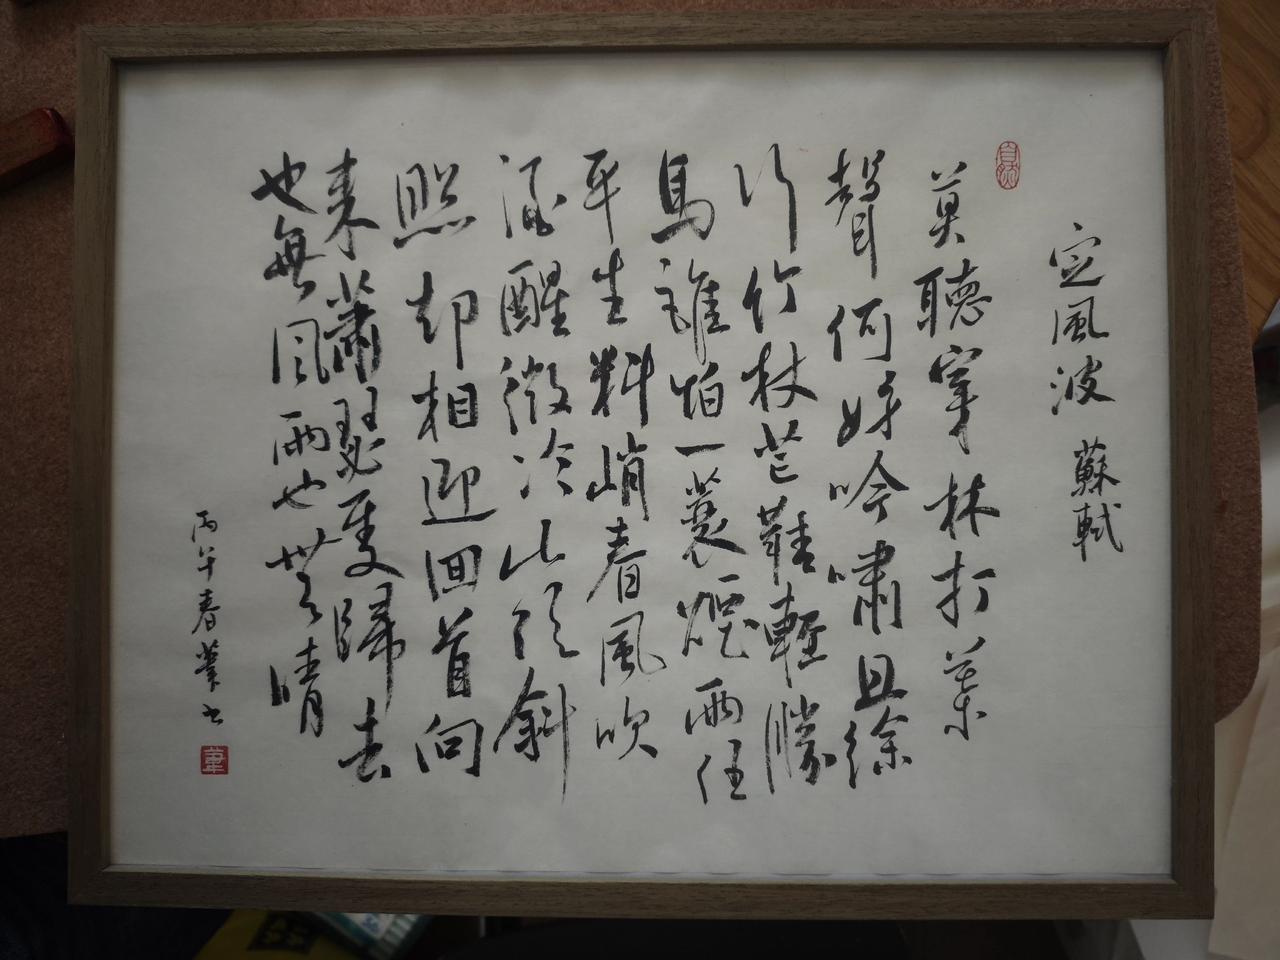 定風波 蘇軾
莫聽穿林打葉
聲何妨吟嘯且徐
行竹杖芒鞋輕勝
馬誰怕一蓑煙雨任
平生料峭春風吹
酒醒微冷山頭斜
照却相迎回首向
來蕭瑟處歸去
也無風雨也無晴
丙午春葦書